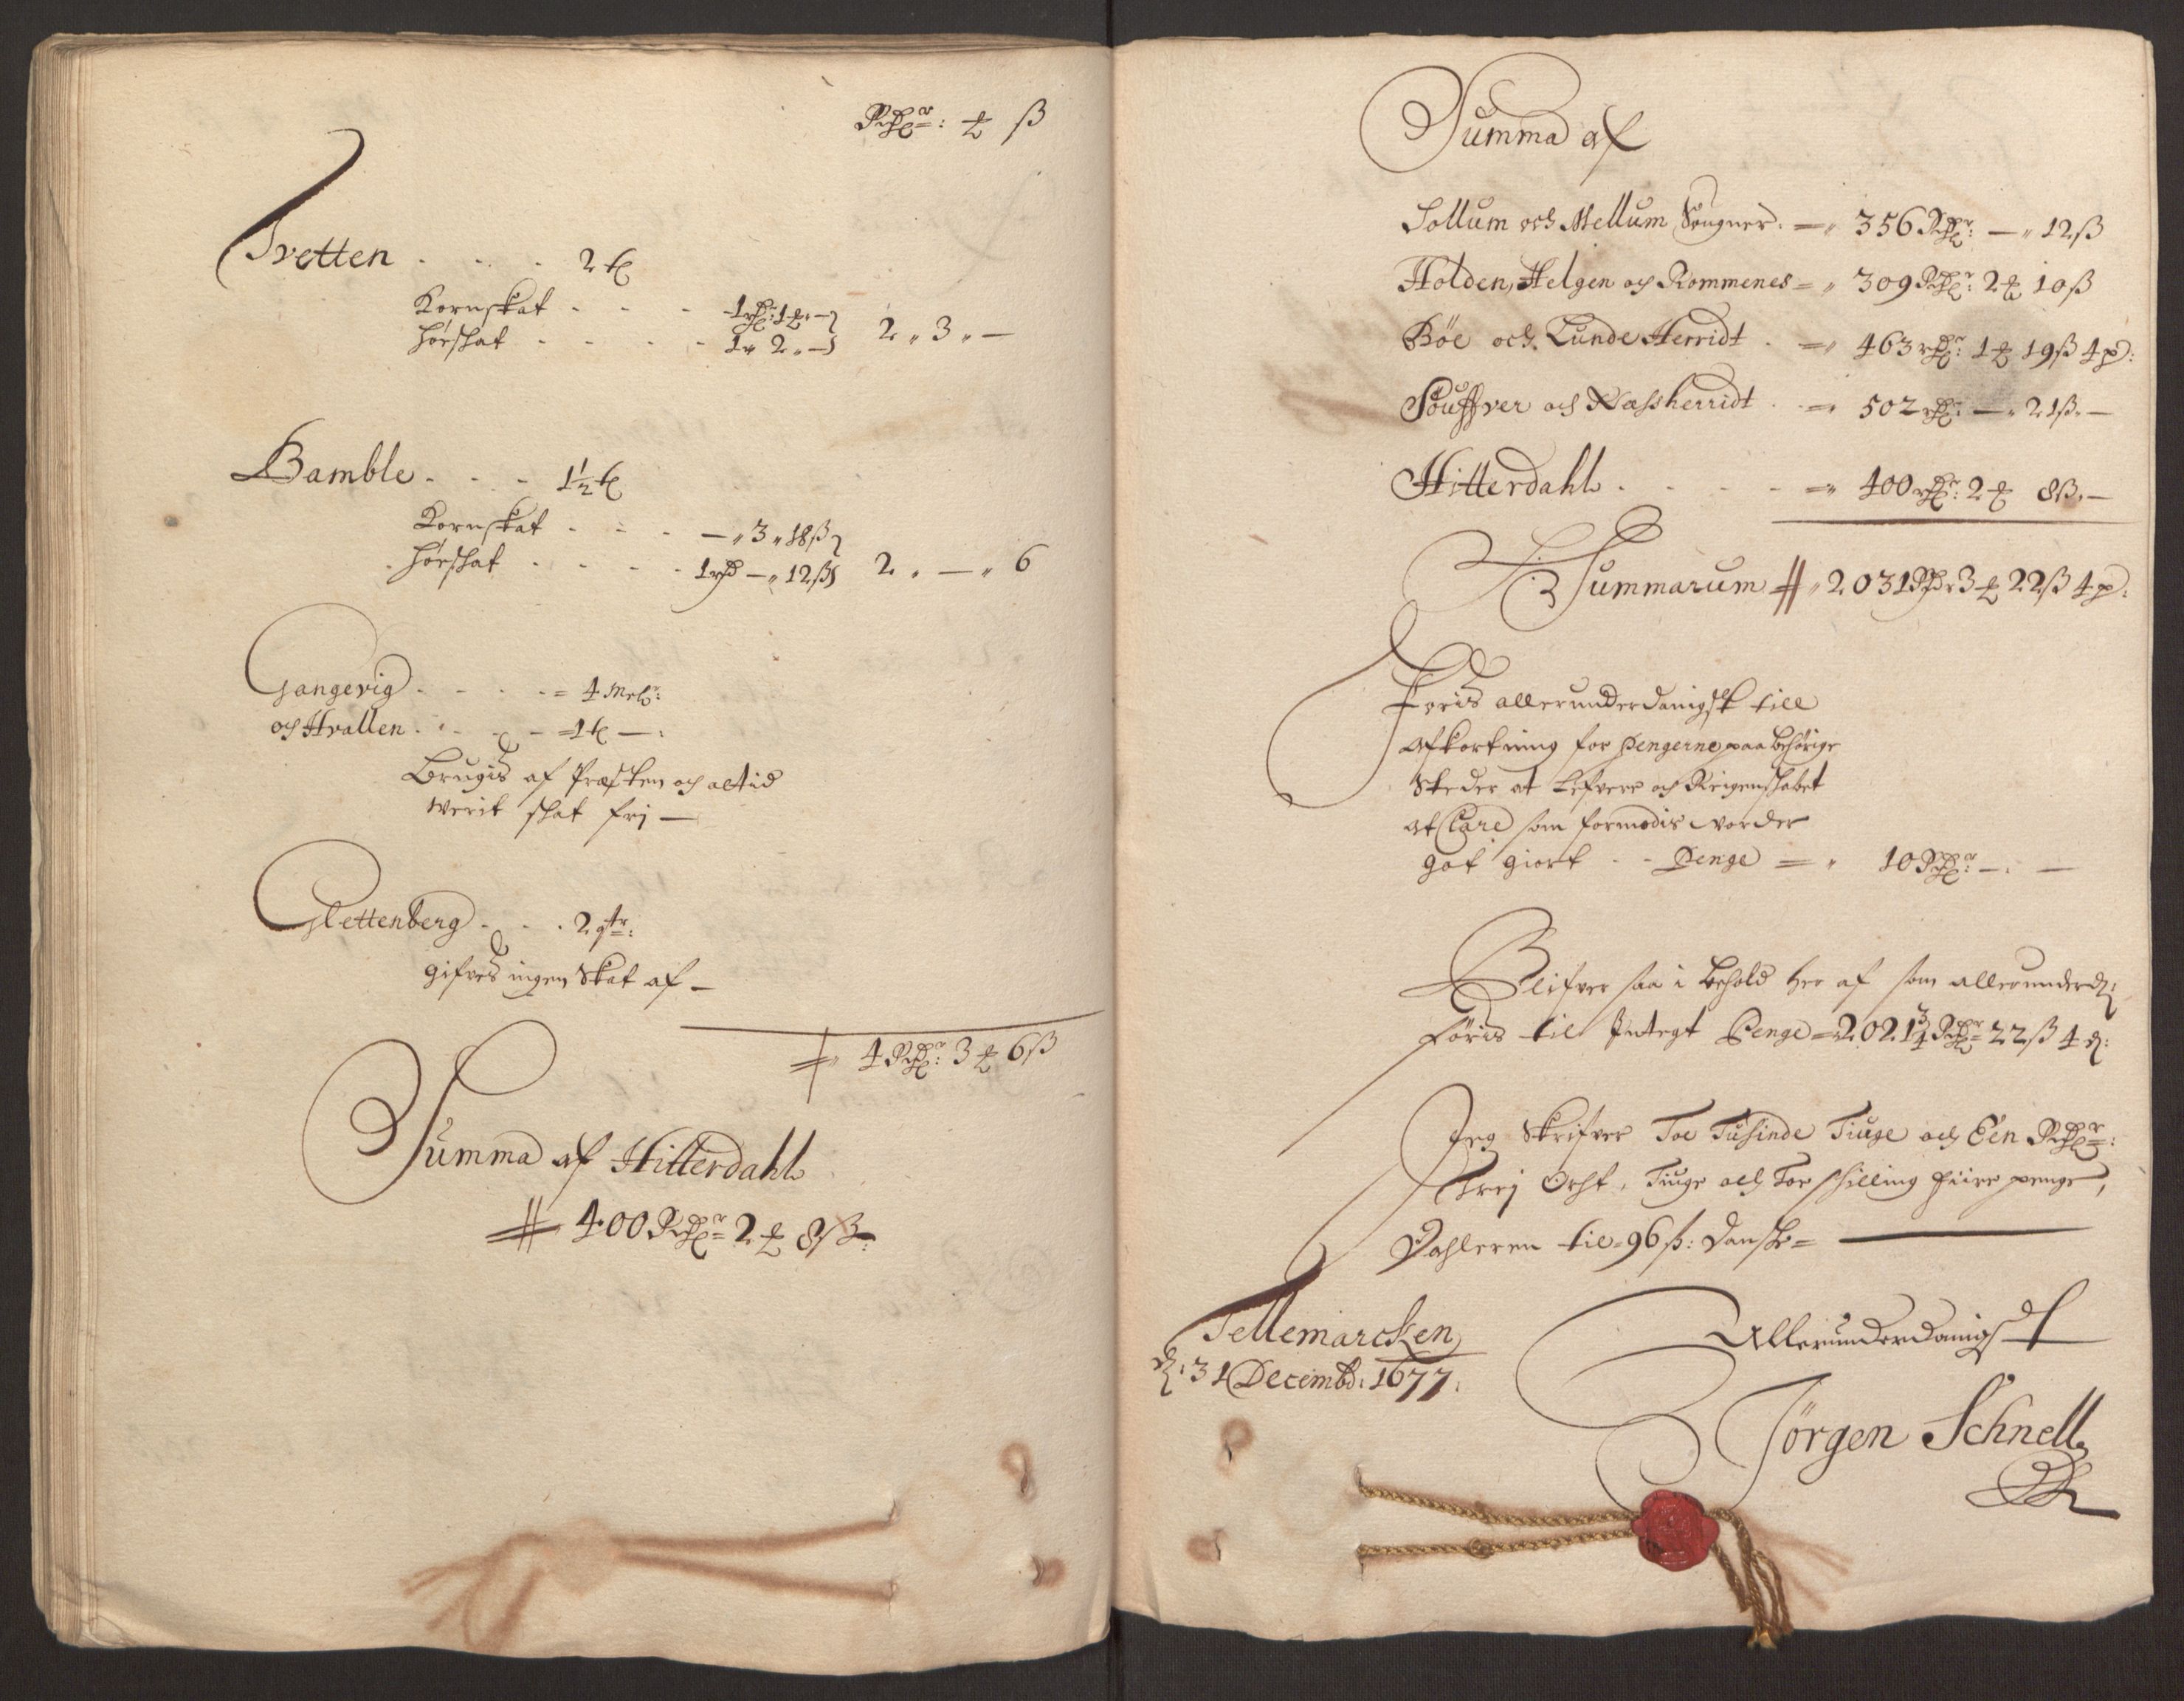 Rdr: ort ß
Tvetten - - - 2 tr
Kornskat - - - 1 rdr: 1 ort: —
hørskat - - - - 1 „ 2 „ — 2 „ 3 „ —
Bamble - - - 1½ tr
Kornskat - - - — „ 3 „ 18 ß
hørskat - - - - 1 rd — „ 12 ß 2 „ — „ 6
Gangevig - - - - = 4 Mel:
och Hvallen - - - = 1 tr — :
Brugis af Præsten och altid
Werit skat frj —
Glettenberg - - - 2 qtr:
gifves ingen Skat af —
4 Rdr: 3 ort 6 ß
Summa af Hitterdahl
400 Rdr 2 ort 8 ß —
Summa af
Sollum och Mellum Sougner - = „ 356 Rdr: — „ 12 ß
Holden, Helgen och Rommenes = „ 309 Rdr: 2 ort 10 ß
Böe och Lunde Herridt - = „ 463 rdr: 1 ort 19 ß 4 p:
Souffver och Næssherridt - = 502 rdr: — „ 21 ß —
Hitterdahl - - - - = „ 400 rdr: 2 ort 8 ß —
Summarum „ 2031 Rdr 3 ort 22 ß 4 p:
Føris allerunderdanigst till
Afkortning for Pengerne paa behörige
Steder at lefvere och Reigenskabet
at Clare som formodis vorder
got giort - - Penge = „ 10 Rdr — : —
Blifver saa i behold her af som allerunderd:
føris til Indtegt Penge = 2021¾ Rdr 22 ß 4 d:
Jeg Skrifver Toe Tusinde Tiuge och Een Rdr:
Trej Ort, Tiuge och Toe skilling fiire penge,
Dahleren til 96 ß: Danske =
Tellemarcken
d: 31 Decembd: 1677.
Allerunderdanigst
Jörgen Schnell